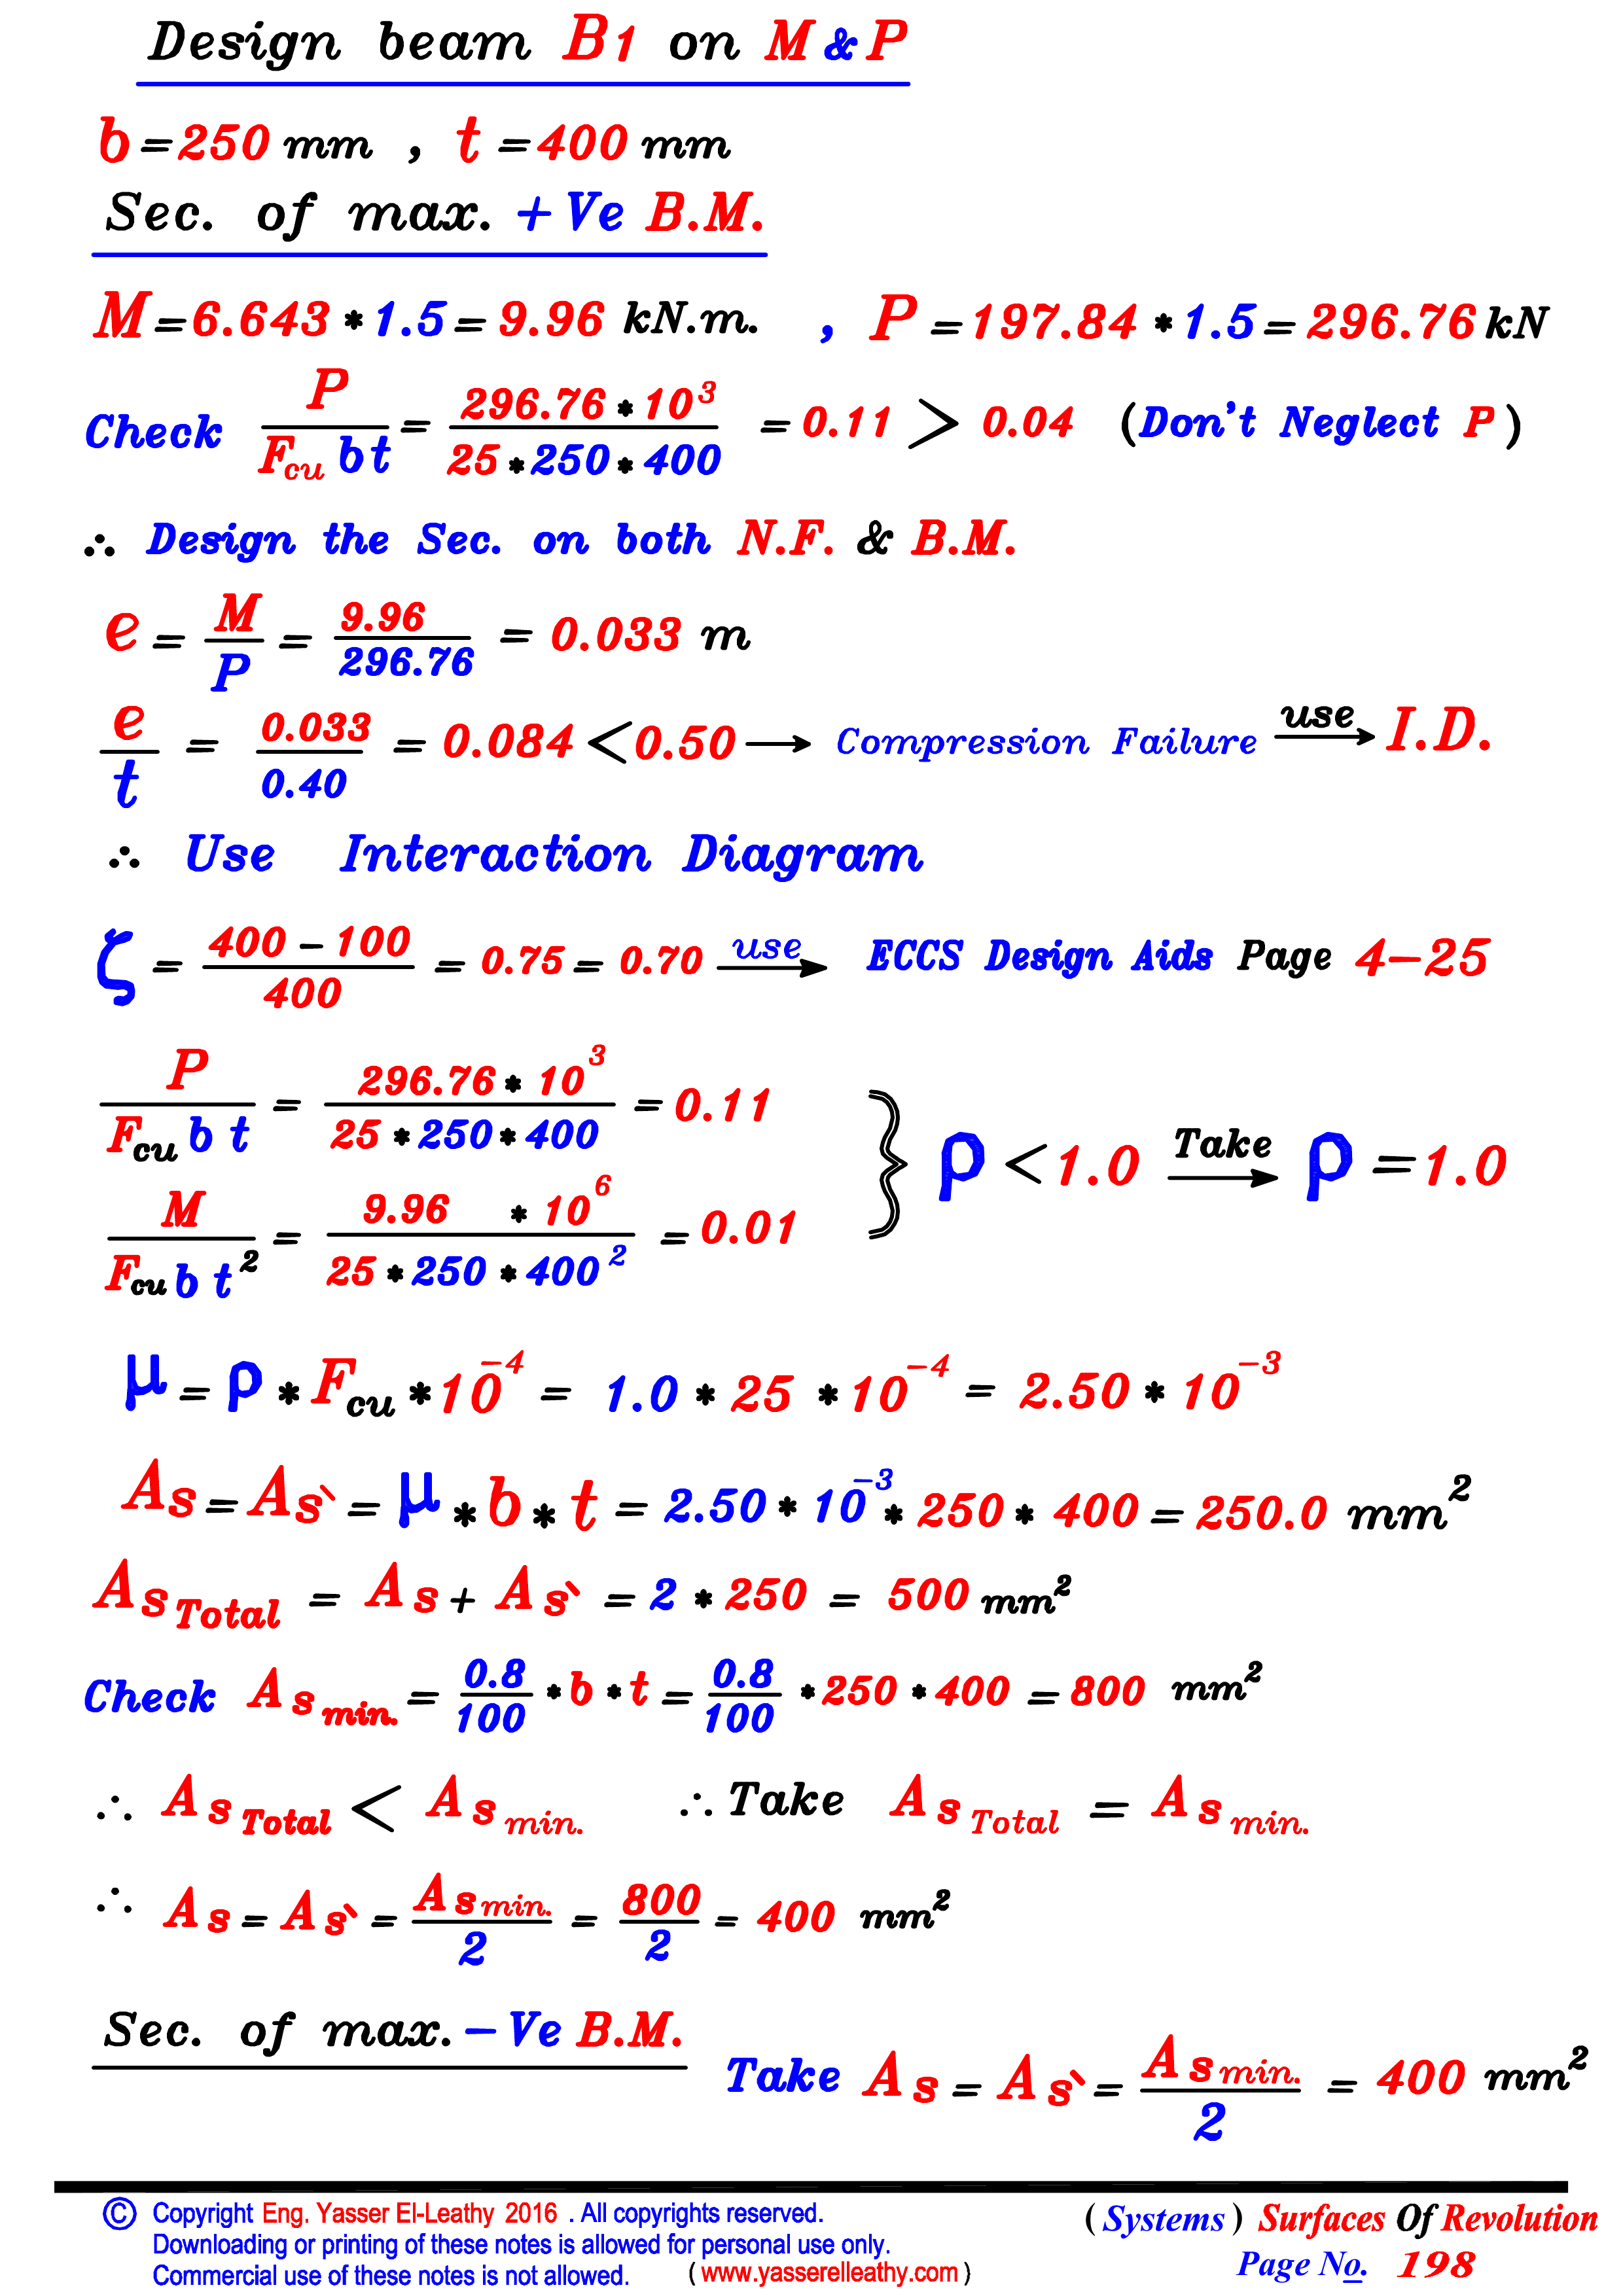 Design beam B1 on M & P
b = 250 mm , t = 400 mm
Sec. of max. +Ve B.M.
M = 6.643 * 1.5 = 9.96 kN.m. , P = 197.84 * 1.5 = 296.76 kN
Check P / (Fcu b t) = (296.76 * 10^3) / (25 * 250 * 400) = 0.11 > 0.04 (Don't Neglect P)
∴ Design the Sec. on both N.F. & B.M.
e = M / P = 9.96 / 296.76 = 0.033 m
e / t = 0.033 / 0.40 = 0.084 < 0.50 → Compression Failure use→ I.D.
∴ Use Interaction Diagram
ζ = (400 - 100) / 400 = 0.75 = 0.70 use→ ECCS Design Aids Page 4-25
P / (Fcu b t) = (296.76 * 10^3) / (25 * 250 * 400) = 0.11
M / (Fcu b t^2) = (9.96 * 10^6) / (25 * 250 * 400^2) = 0.01
} ρ < 1.0 Take→ ρ = 1.0
μ = ρ * Fcu * 10^-4 = 1.0 * 25 * 10^-4 = 2.50 * 10^-3
As = As` = μ * b * t = 2.50 * 10^-3 * 250 * 400 = 250.0 mm^2
As Total = As + As` = 2 * 250 = 500 mm^2
Check As min. = 0.8 / 100 * b * t = 0.8 / 100 * 250 * 400 = 800 mm^2
∴ As Total < As min. ∴ Take As Total = As min.
∴ As = As` = As min. / 2 = 800 / 2 = 400 mm^2
Sec. of max. -Ve B.M.
Take As = As` = As min. / 2 = 400 mm^2
© Copyright Eng. Yasser El-Leathy 2016 . All copyrights reserved.
Downloading or printing of these notes is allowed for personal use only.
Commercial use of these notes is not allowed. ( www.yasserelleathy.com )
( Systems ) Surfaces Of Revolution
Page No. 198